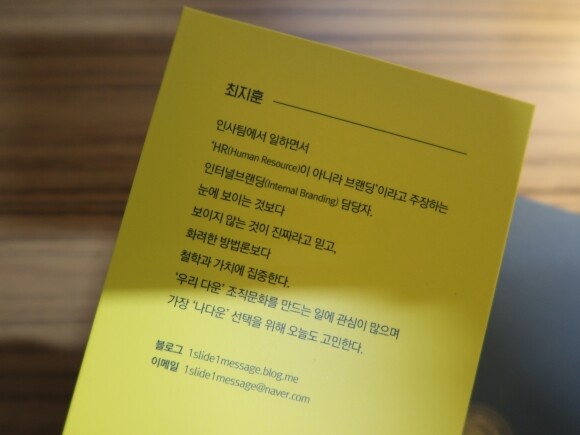 최지훈
인사팀에서 일하면서
'HR(Human Resource)이 아니라 브랜딩'이라고 주장하는
인터널브랜딩(Internal Branding) 담당자.
눈에 보이는 것보다
보이지 않는 것이 진짜라고 믿고,
화려한 방법론보다
철학과 가치에 집중한다.
'우리 다운' 조직문화를 만드는 일에 관심이 많으며
가장 '나다운' 선택을 위해 오늘도 고민한다.
블로그 1slide1message.blog.me
이메일 1slide1message@naver.com